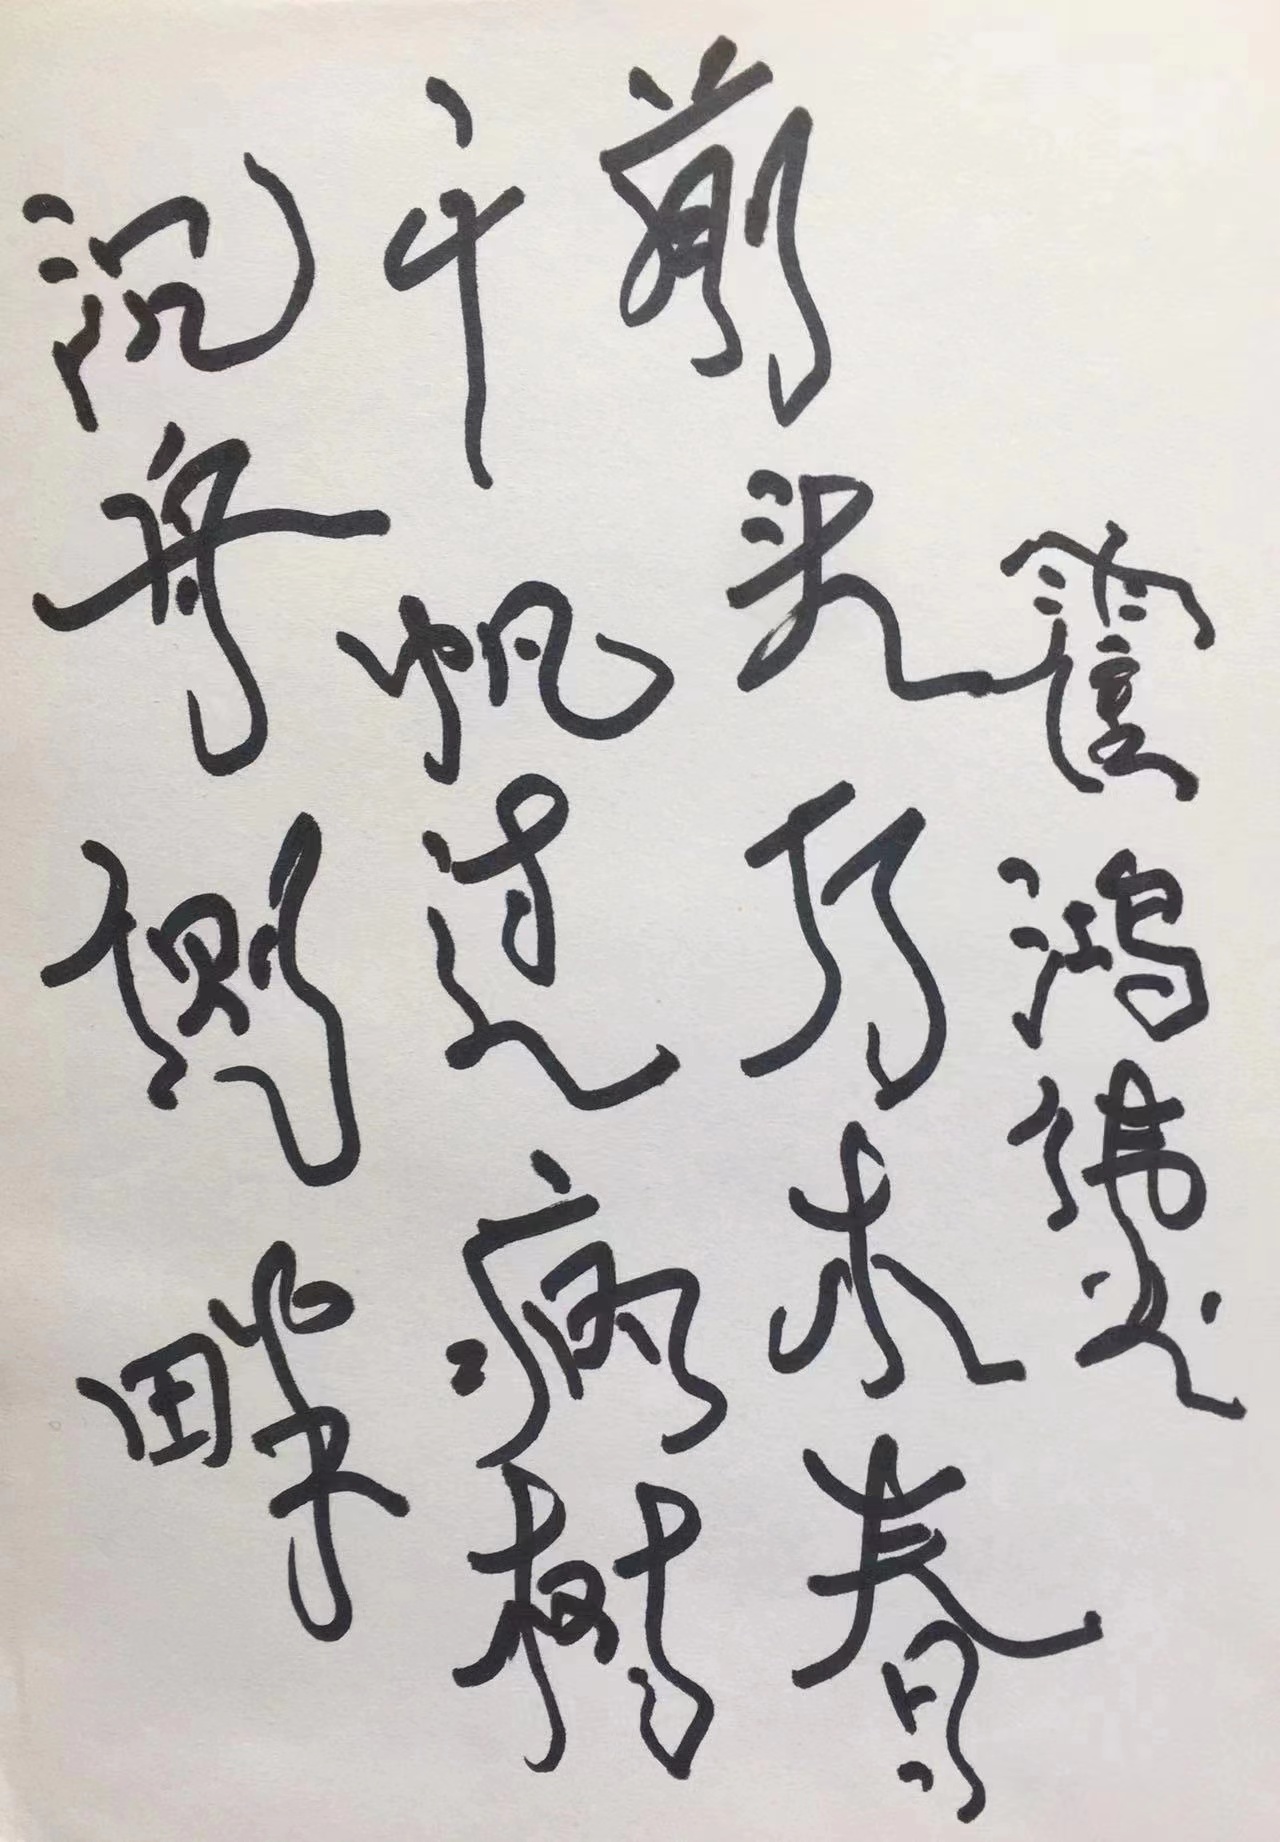 沉舟侧畔
千帆过病树
前头万木春
霍鸿纬